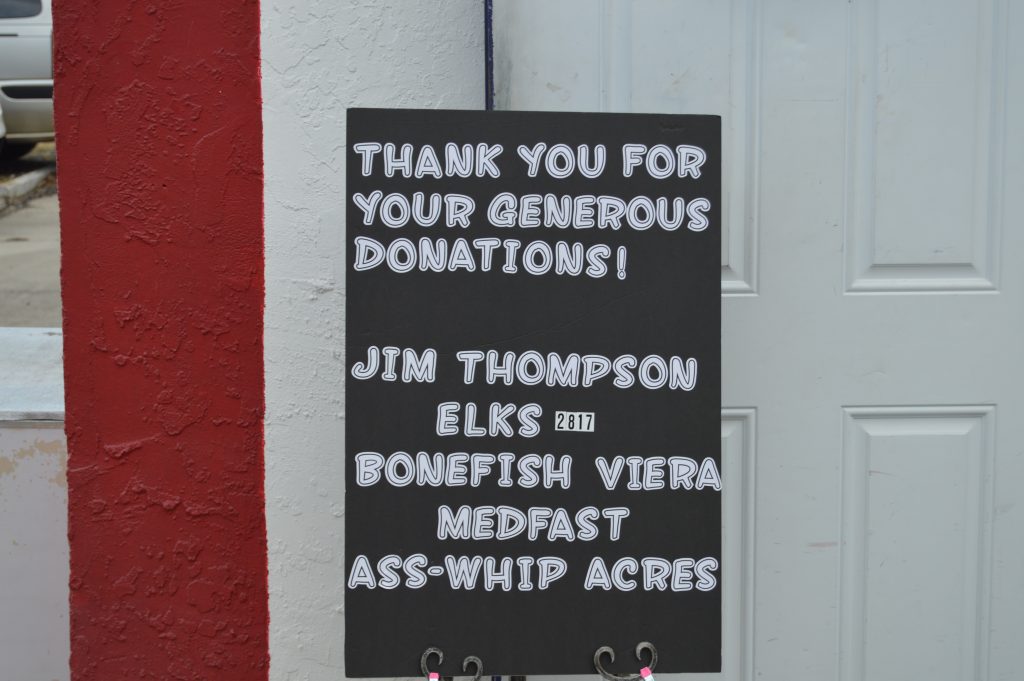 THANK YOU FOR
YOUR GENEROUS
DONATIONS!
JIM THOMPSON
ELKS 2817
BONEFISH VIERA
MEDFAST
ASS-WHIP ACRES